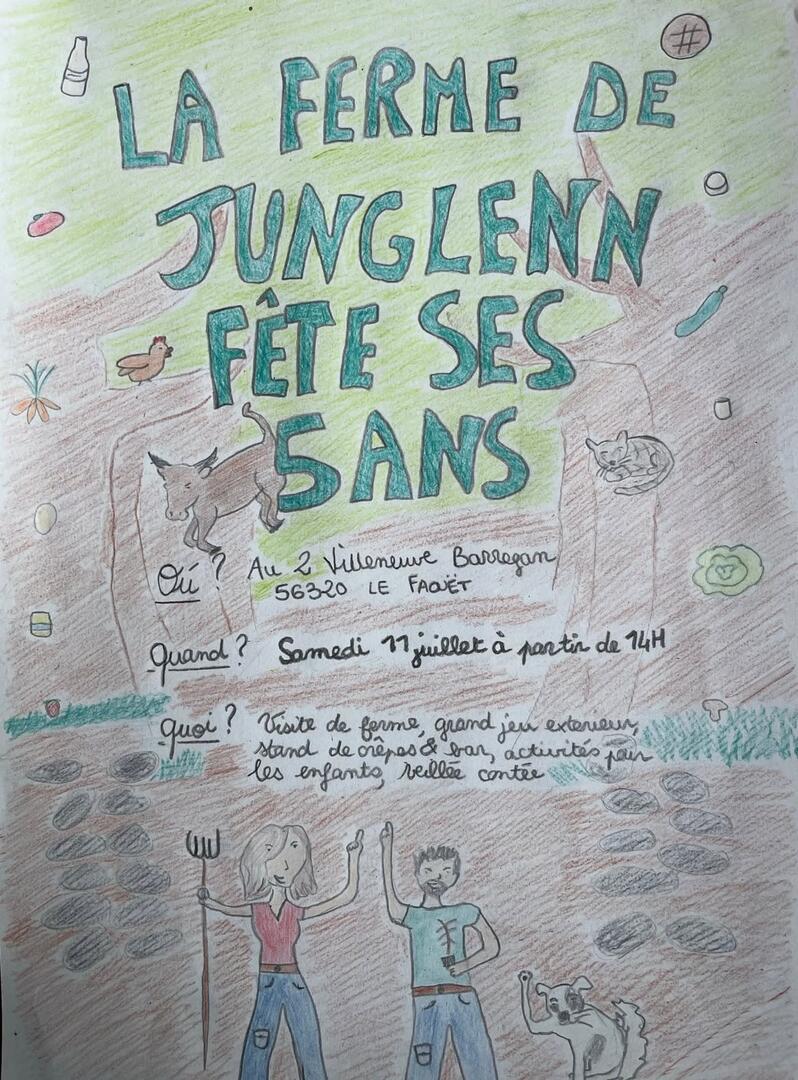 LA FERME DE
JUNGLENN
FÊTE SES
5 ANS
Où ? Au 2 Villeneuve Barregan
56320 LE FAOUËT
Quand ? Samedi 11 juillet à partir de 14H
quoi ? Visite de ferme, grand jeu exterieur,
stand de crêpes & bar, activités pour
les enfants, veillée contée